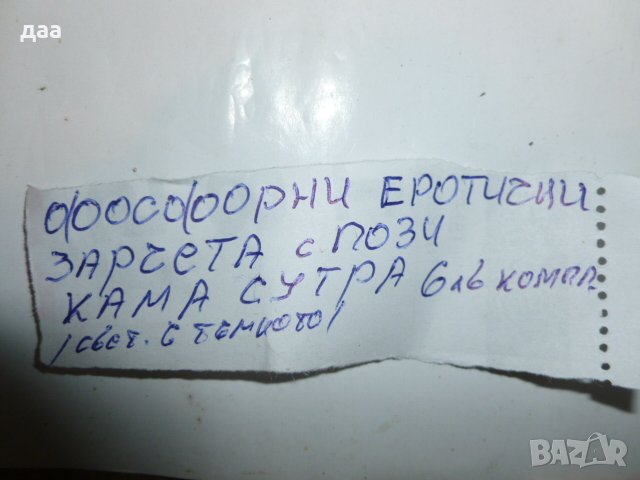 даа
ФОСФОРНИ ЕРОТИЧНИ
ЗАРЧЕТА С ПОЗИ
КАМА СУТРА 6лв компл.
/свет. в тъмното/
BAZAR